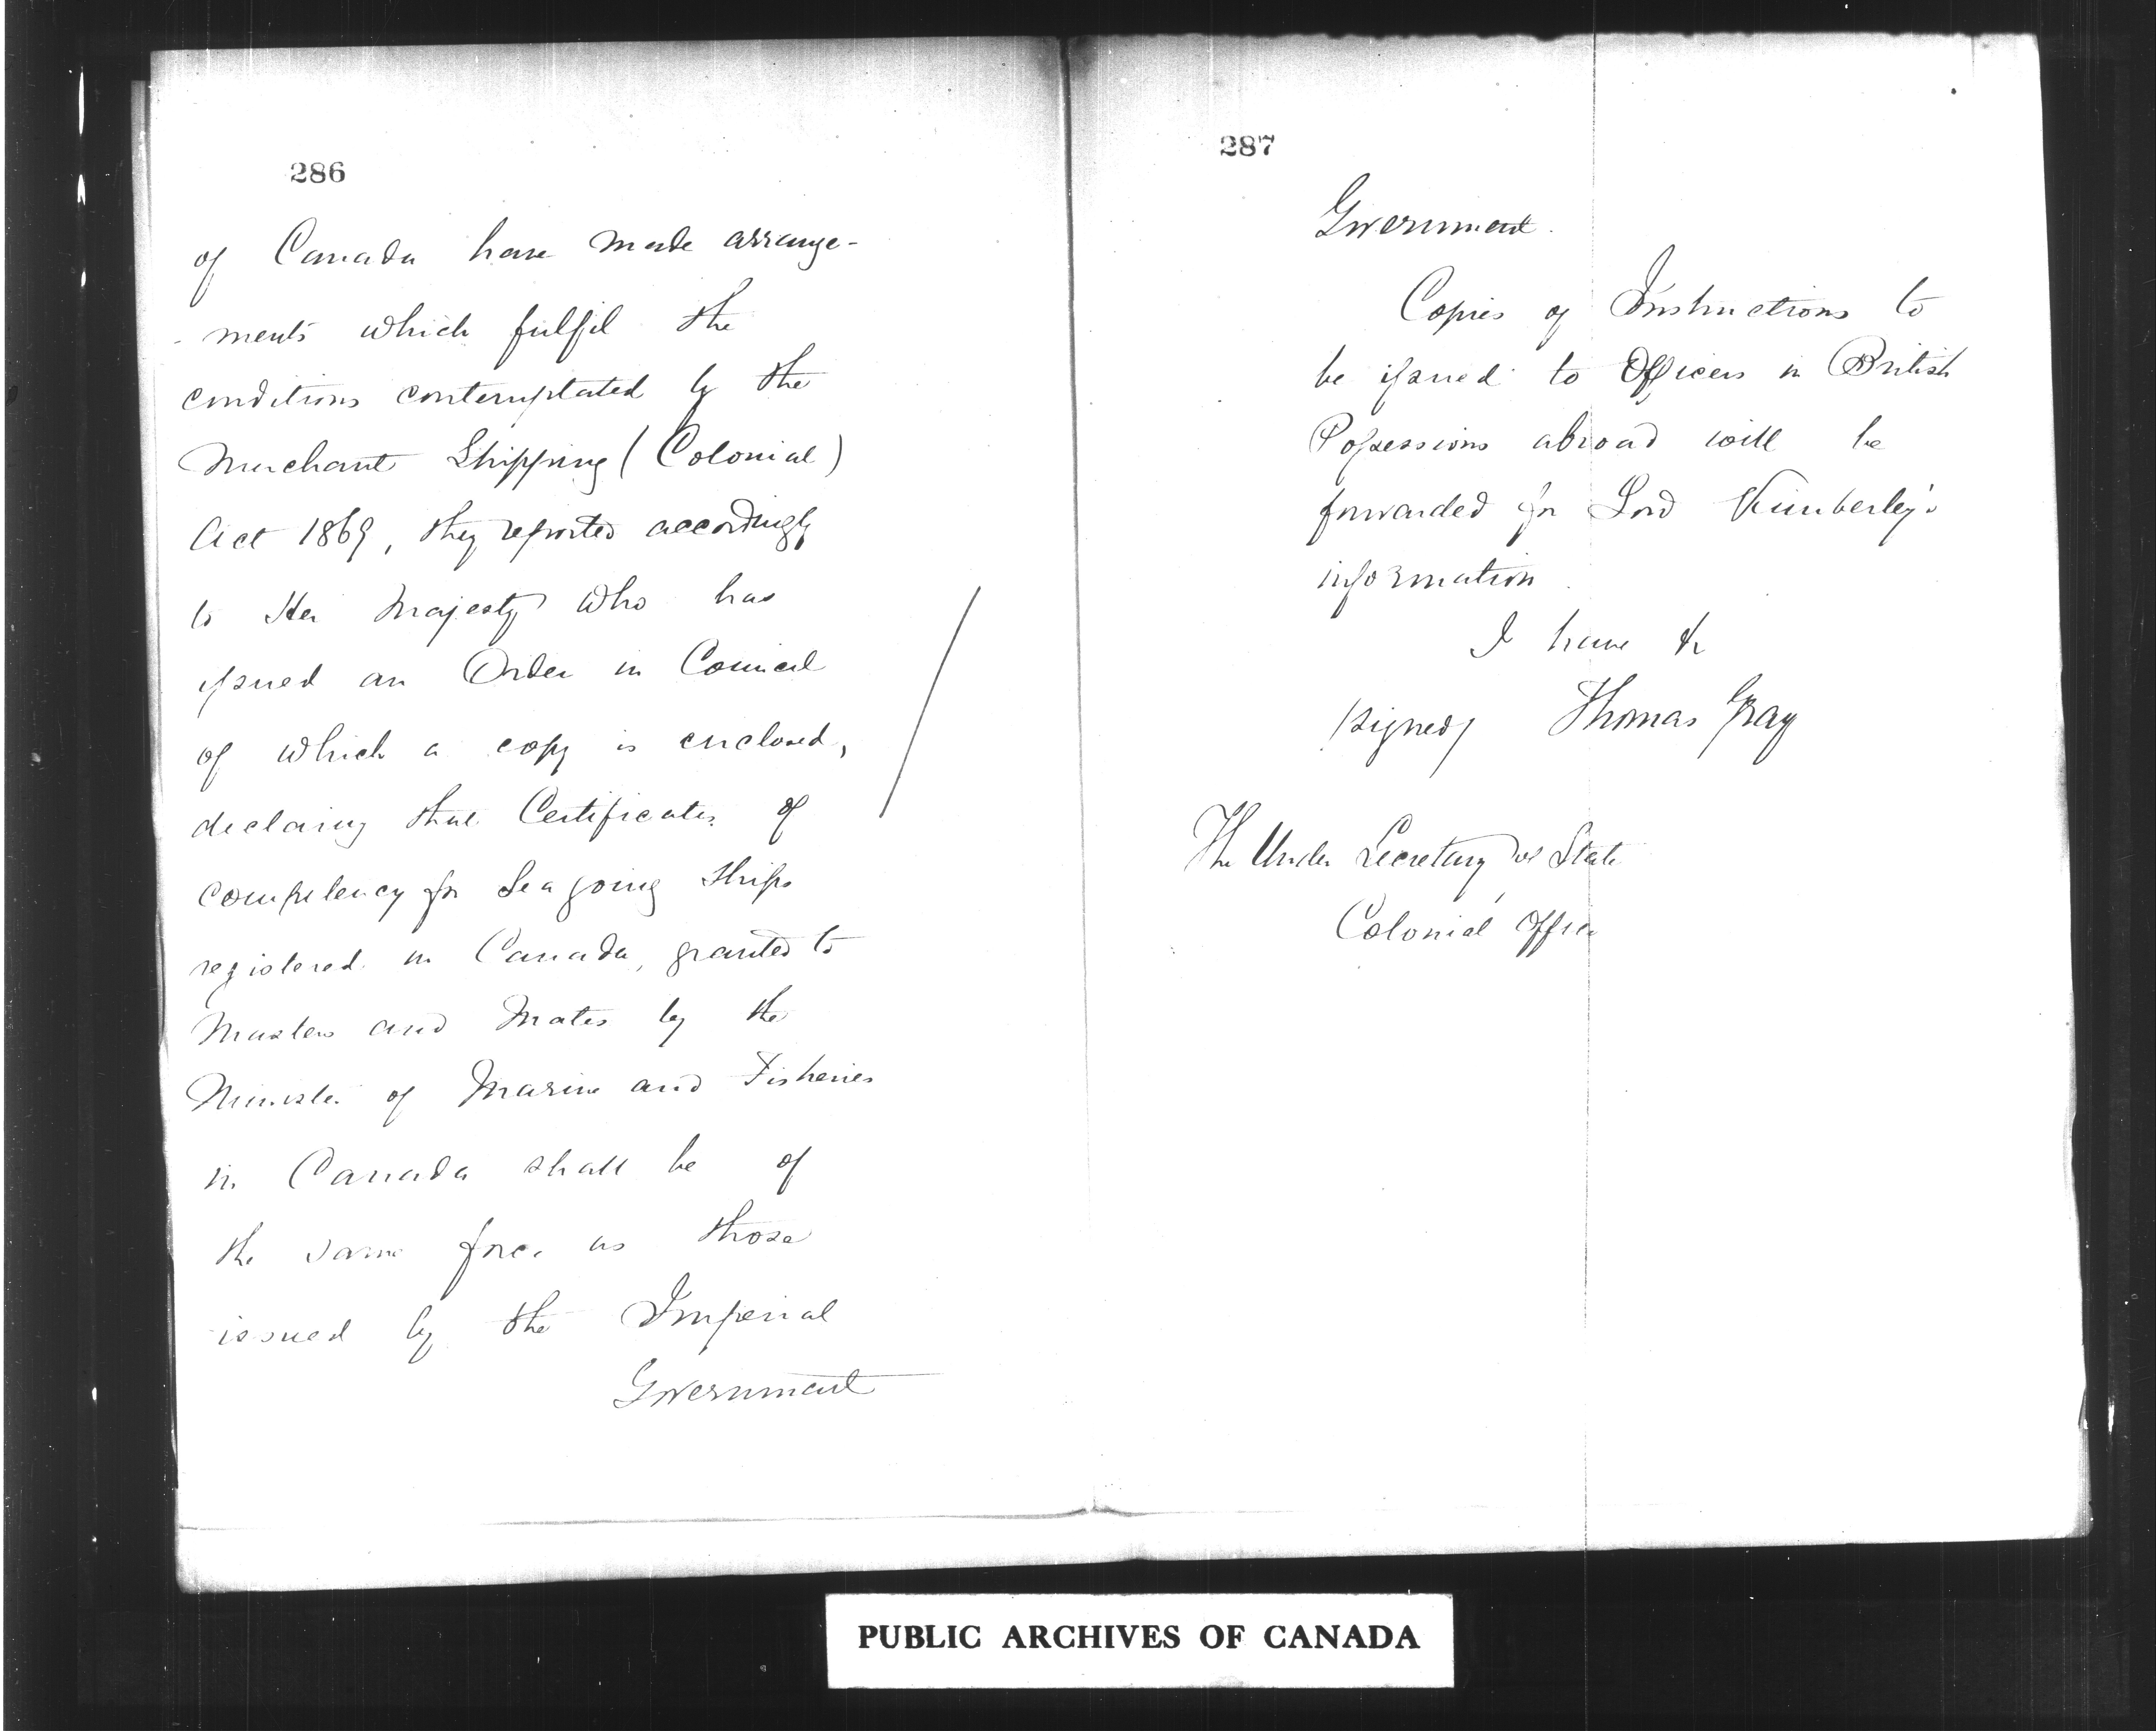 286
of Canada have made arrange-
-ments which fulfil the
conditions contemplated by the
Merchant Shipping (Colonial)
Act 1869, they reported accordingly
to Her Majesty who has
issued an Order in Council
of which a copy is enclosed,
declaring that Certificates of
competency for Sea going Ships
registered in Canada, granted to
Masters and Mates by the
Minister of Marine and Fisheries
in Canada shall be of
the same force as those
issued by the Imperial
Government
287
Government.
Copies of Instructions to
be issued to Officers in British
Possessions abroad will be
forwarded for Lord Kimberley's
information
I have &c
(signed) Thomas Gray
The Under Secretary of State
Colonial Office
PUBLIC ARCHIVES OF CANADA